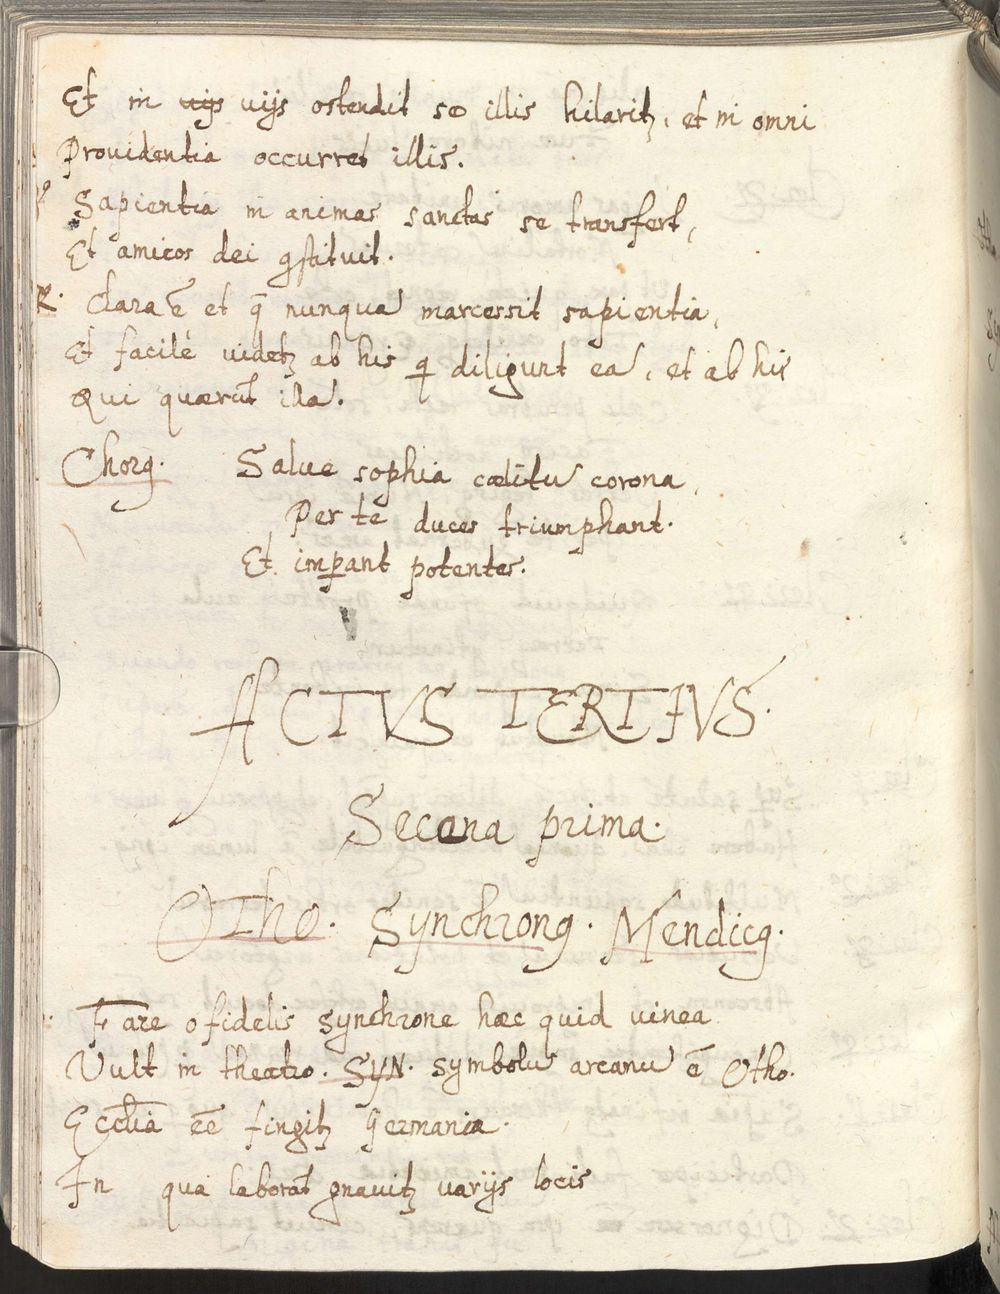 Et in uijs uijs ostendit se illis hilaritꝫ, et in omni
Prouidentia occurret illis.
Sapientia in animas sanctas se transfert,
Et amicos dei ꝯstituit.
R. Clara ē et q̄ nunquā marcessit sapientia,
Et facilè uidetꝫ ab his q̣ diligunt eā, et ab his
Qui quærūt illā.
Chorꝰ. Salue sophia cœlitū corona,
Per tē duces triumphant.
Et imꝑant potentes.
ACTVS TERTIVS.
Scena prima.
Otho. Synchronꝰ. Mendicꝰ.
Fare o fidelis synchrone hæc quid uinea
Vult in theatro. SYN. symbolū arcanū ē Otho.
Eccl̄ia eē fingitꝫ Germania.
In qua laborāt gnauitꝫ uarijs locis